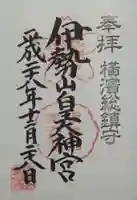 奉拝
横濱総鎮守
伊勢山皇大神宮
平成二八年十二月二八日